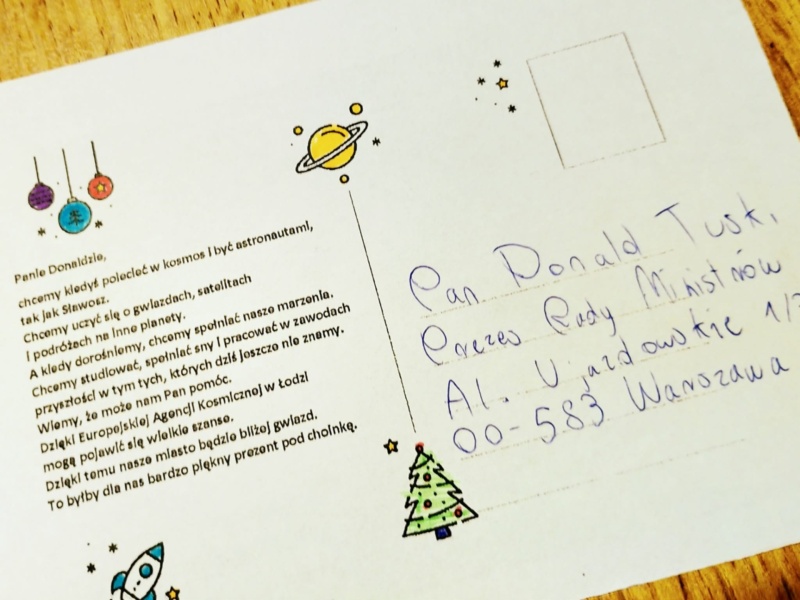 Panie Donaldzie,
chcemy kiedyś polecieć w kosmos i być astronautami,
tak jak Sławosz.
Chcemy uczyć się o gwiazdach, satelitach
i podróżach na inne planety.
A kiedy dorośniemy, chcemy spełniać nasze marzenia.
Chcemy studiować, spełniać sny i pracować w zawodach
przyszłości w tym tych, których dziś jeszcze nie znamy.
Wiemy, że może nam Pan pomóc.
Dzięki Europejskiej Agencji Kosmicznej w Łodzi
mogą pojawić się wielkie szanse.
Dzięki temu nasze miasto będzie bliżej gwiazd.
To byłby dla nas bardzo piękny prezent pod choinkę.
Pan Donald Tusk,
Prezes Rady Ministrów
Al. Ujazdowskie 1/3
00-583 Warszawa